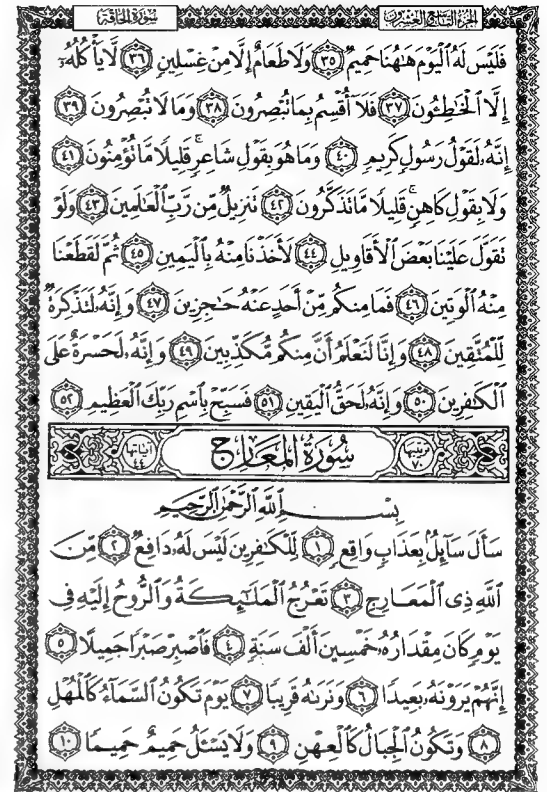 الجزء التاسع والعشرون سورة الحاقة
فَلَيْسَ لَهُ الْيَوْمَ هَٰهُنَا حَمِيمٌ ٣٥ وَلَا طَعَامٌ إِلَّا مِنْ غِسْلِينٍ ٣٦ لَّا يَأْكُلُهُ
إِلَّا الْخَاطِئُونَ ٣٧ فَلَا أُقْسِمُ بِمَا تُبْصِرُونَ ٣٨ وَمَا لَا تُبْصِرُونَ ٣٩
إِنَّهُ لَقَوْلُ رَسُولٍ كَرِيمٍ ٤٠ وَمَا هُوَ بِقَوْلِ شَاعِرٍ ۚ قَلِيلًا مَّا تُؤْمِنُونَ ٤١
وَلَا بِقَوْلِ كَاهِنٍ ۚ قَلِيلًا مَّا تَذَكَّرُونَ ٤٢ تَنزِيلٌ مِّن رَّبِّ الْعَالَمِينَ ٤٣ وَلَوْ
تَقَوَّلَ عَلَيْنَا بَعْضَ الْأَقَاوِيلِ ٤٤ لَأَخَذْنَا مِنْهُ بِالْيَمِينِ ٤٥ ثُمَّ لَقَطَعْنَا
مِنْهُ الْوَتِينَ ٤٦ فَمَا مِنكُم مِّنْ أَحَدٍ عَنْهُ حَاجِزِينَ ٤٧ وَإِنَّهُ لَتَذْكِرَةٌ
لِّلْمُتَّقِينَ ٤٨ وَإِنَّا لَنَعْلَمُ أَنَّ مِنكُم مُّكَذِّبِينَ ٤٩ وَإِنَّهُ لَحَسْرَةٌ عَلَى
الْكَافِرِينَ ٥٠ وَإِنَّهُ لَحَقُّ الْيَقِينِ ٥١ فَسَبِّحْ بِاسْمِ رَبِّكَ الْعَظِيمِ ٥٢
ترتيبها ٧٠ سُورَةُ الْمَعَارِجِ آياتها ٤٤
بِسْمِ اللَّهِ الرَّحْمَٰنِ الرَّحِيمِ
سَأَلَ سَائِلٌ بِعَذَابٍ وَاقِعٍ ١ لِّلْكَافِرِينَ لَيْسَ لَهُ دَافِعٌ ٢ مِّنَ
اللَّهِ ذِي الْمَعَارِجِ ٣ تَعْرُجُ الْمَلَائِكَةُ وَالرُّوحُ إِلَيْهِ فِي
يَوْمٍ كَانَ مِقْدَارُهُ خَمْسِينَ أَلْفَ سَنَةٍ ٤ فَاصْبِرْ صَبْرًا جَمِيلًا ٥
إِنَّهُمْ يَرَوْنَهُ بَعِيدًا ٦ وَنَرَاهُ قَرِيبًا ٧ يَوْمَ تَكُونُ السَّمَاءُ كَالْمُهْلِ
٨ وَتَكُونُ الْجِبَالُ كَالْعِهْنِ ٩ وَلَا يَسْأَلُ حَمِيمٌ حَمِيمًا ١٠